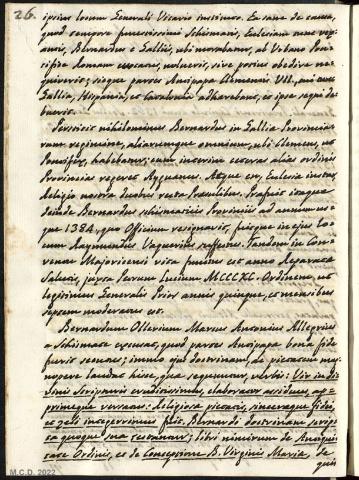 26.
ipsius locum Generali Vicario instituto. Ea sane de causa,
quod semper funestissimi Schismatis, Ecclesiam nunc vex-
antis, Bernardus e Gallis, ubi morabatur, ab Urbano Pon-
tifice Romam evocatus, noluerit, sive potius obedire ne-
quiverit; sicque partes Antipapae Clementis VII., qui cunc
Gallia, Hispania, et Catalonia adhaerebant, et ipse sequi de-
buerit.
Persistit nihilominus Bernardus in Gallia Provincia-
rum regimine, aliarumque omnium, ubi Clemens, ut
Pontifex, habebatur; cum interim ceteras alias ordinis
Provincias regeret Ayguanus. Atque en, Ecclesia instar,
Religio nostra duobus recta Praesulibus. Praefuit itaque
deinde Bernardus schismaticis Provinciis ad annum us-
que 1384, quo Officium resignavit, fuitque in ejus lo-
cum Raymundus Vaquerius suffectus. Tandem in Con-
ventu Majoricensi vita functus est anno Reparatae
Salutis, juxta Petrum Lucium MCCCXC. Ordinem, ut
legitimus Generalis Prior annis quinque, et mensibus
septem moderatus est.
Bernardum Ollerium Marcus Antonius Allegrius
a Schismate excusat, quod partes Antipapae bona fide
fuerit secutus; immo ejus doctrinam, ac pietatem ma-
gnopere laudat hisce, quae sequuntur, verbis: Vir in di-
vinis Scripturis eruditissimus, elaborator assiduus, ap-
primeque versatus: Religiosae pietatis, sinceraeque fidei,
et zeli integerrimus fuit. Bernardi doctrinam scrip-
ta quoque sua testantur; libri nimirum de Antiqui-
tate Ordinis, et de Conceptione B. Virginis Mariae, de
quib
M.C.D. 2022